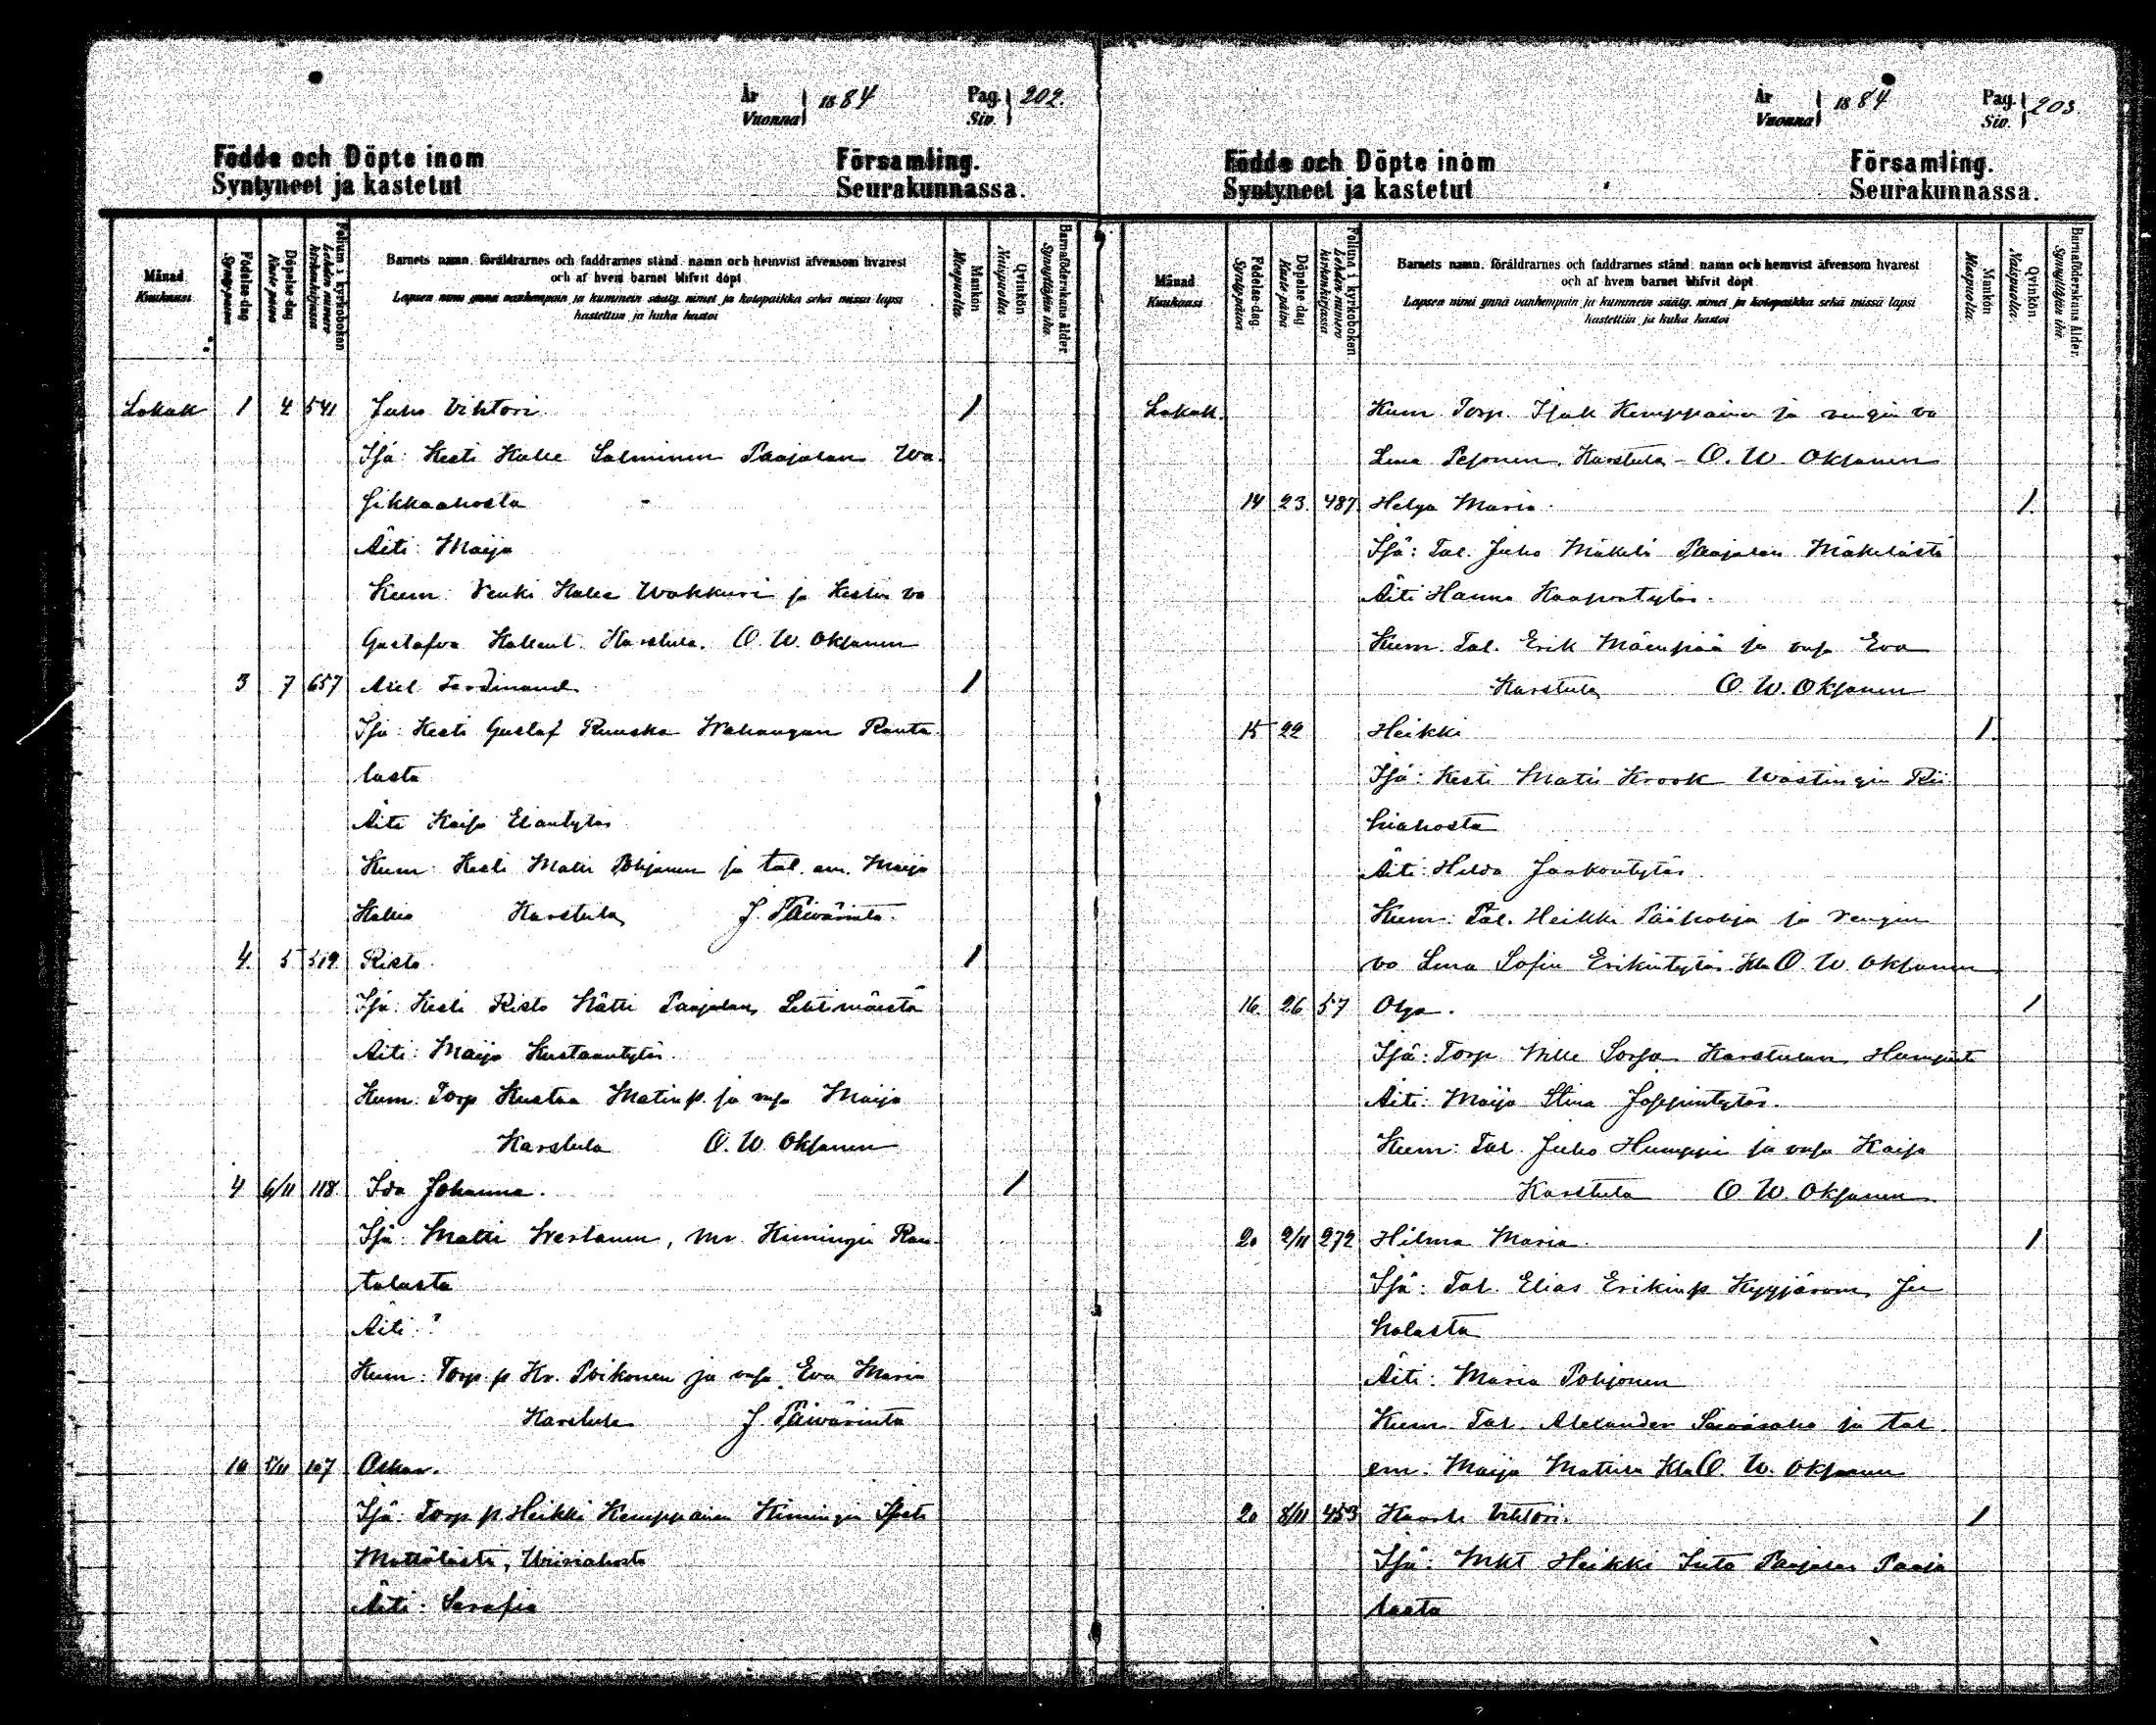 År
Vuonna 1884
Pag.
Siv. 202.
Födde och Döpte inom Församling.
Syntyneet ja kastetut Seurakunnassa.
Månad
Kuukausi
Födelse-dag
Synty-päiwä
Döpelse-dag
Kaste-päiwä
Folium i kyrkoboken
Lehden numero kirkonkirjassa
Barnets namn, föräldrarnes och faddrarnes stånd, namn och hemvist äfvensom hvarest
och af hvem barnet blifvit döpt
Lapsen nimi ynnä vanhempain ja kummein sääty, nimet ja kotopaikka sekä missä lapsi
kastettiin ja kuka kastoi
Mankön
Miespuolta
Qvinkön
Naispuolta
Barnaföderskans ålder
Synnyttäjän ikä
Lokak 1 4 541 Juho Viktori 1
Isä: Kesti Kalle Salminen Paajalan
Äiti: Maija
Kum: Renki Kalle Wakkuri ja Kestin vo
Gustafva Karstula. O. W. Oksanen
3 7 657 Axel Ferdinand 1
Isä: Kesti Gustaf Ruuska Wahangan Ranta
lasta
Äiti Kaisa Eliantytär
Kum: Kesti Matti Pohjonen ja tal. em. Maija
Karstula J. Päivärinta.
4. 5 519. Risto. 1
Isä: Kesti Risto Hätti Paajalan Lehtimäestä
Äiti: Maija Kustaantytär.
Kum: Torp Kustaa Matinp. ja vaja Maija
Karstula O. W. Oksanen
4 6/11 118. Ida Johanna. 1
Isä: Matti mr. Kimingin Ran
talasta
Äiti: ?
Kum: Torp. p Kr. Poikonen ja vaja Eva Maria
Karstula J. Päivärinta
10 5/11 107 Oskar.
Isä: Torp p. Heikki Kemppainen Kimingin
Äiti: Serafia
År
Vuonna 1884
Pag.
Siv. 203.
Födde och Döpte inom Församling.
Syntyneet ja kastetut Seurakunnassa.
Månad
Kuukausi
Födelse-dag
Synty-päiwä
Döpelse-dag
Kaste-päiwä
Folium i kyrkoboken
Lehden numero kirkonkirjassa
Barnets namn, föräldrarnes och faddrarnes stånd, namn och hemvist äfvensom hvarest
och af hvem barnet blifvit döpt
Lapsen nimi ynnä vanhempain ja kummein sääty, nimet ja kotopaikka sekä missä lapsi
kastettiin ja kuka kastoi
Mankön
Miespuolta.
Qvinkön
Naispuolta.
Barnaföderskans ålder.
Synnyttäjän ikä
Lokak. Kum Torp. Isak Kemppainen ja rengin vo
Lena Karstula - O. W. Oksanen
14 23. 487 Helga Maria. 1.
Isä: Tal. Juho Mäkelä Paajalan Mäkelästä
Äiti Hanna Kaapontytär.
Kum: Tal. Erik Mäenpää ja vaja Eva
Karstula O. W. Oksanen
15 22 Heikki 1.
Isä: Kesti Matti Krook Wastingin Rii
hiahosta
Äiti: Hilda Jaakontytär.
Kum: Tal. Heikki Pääkohja ja rengin
vo Lena Sofia Erikintytär. Kla O. W. Oksanen
16. 26 57 Olga. 1
Isä: Torp Wille Sorsa Karstulan
Äiti: Maija Stina
Kum: Tal. Juho Humppi ja vaja Kaisa
Karstula O. W. Oksanen
20 2/11 272 Hilma Maria. 1
Isä: Tal. Elias Erikinp Kyyjärven Ju
holasta
Äiti: Maria Pohjonen
Kum. Tal. Alexander ja tal.
em: Maija Mattila Kla O. W. Oksanen
20 8/11 453 Kaarle Viktori. 1
Isä: Mkt Heikki Paajalan Paaja
lasta